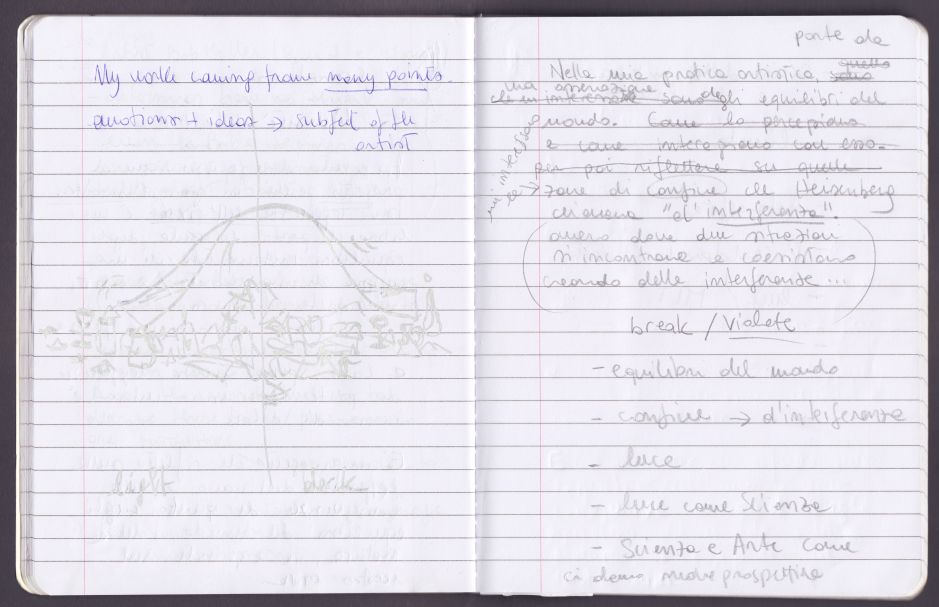 My work coming from many points.
emotions + ideas → subject of the
artist
light dark
parte da
Nella mia pratica artistica, quello
una osservazione
che mi interessa sono degli equilibri del
mondo. Come lo percepiamo
e come interagiamo con esso.
per poi riflettere su quelle
mi interessano
le → zone di confine che Heisenberg
chiamava "d'interferenza".
ovvero dove due situazioni
si incontrano e coesistono
creando delle interferenze ...
break / violate
- equilibri del mondo
- confine → d'interferenza
- luce
- luce come Scienza
- Scienza e Arte come
ci danno nuove prospettive